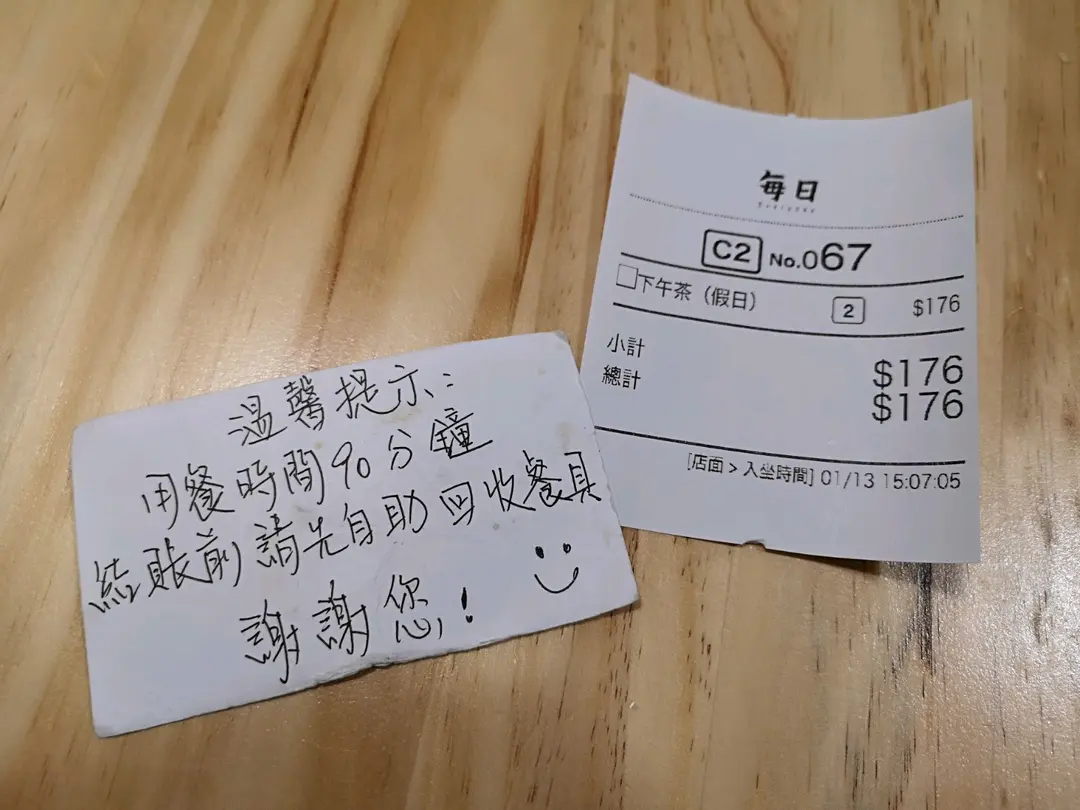 溫馨提示:
用餐時間90分鐘
結賬前請先自助回收餐具
謝謝您!
每日
Everyday
C2 No.067
下午茶（假日） 2 $176
小計 $176
總計 $176
[店面 > 入坐時間] 01/13 15:07:05